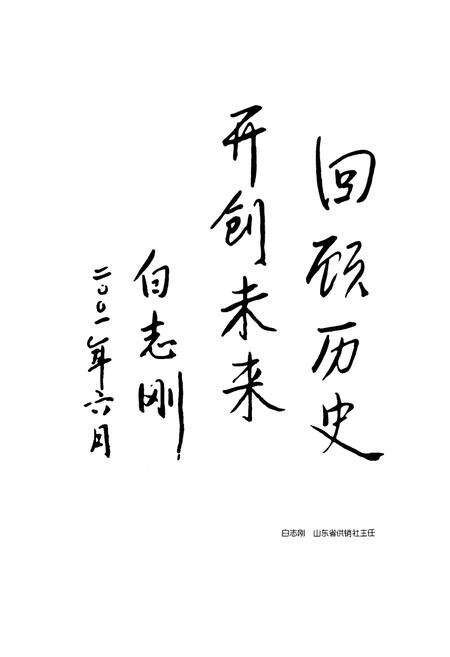 回顾历史
开创未来
白志刚
二〇〇一年六月
白志刚 山东省供销社主任